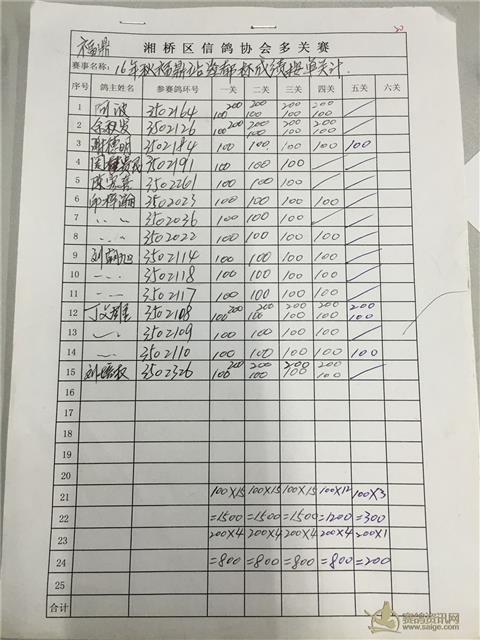 福鼎
湘桥区信鸽协会多关赛
赛事名称: 16年秋福鼎站 成绩接单关计.
序号 鸽主姓名 参赛鸽环号 一关 二关 三关 四关 五关 六关
1 阿波 3502164 200 100 200 100 200 100 200 100
2 3502126 200 100 200 100 200 100 200 100
3 谢德明 3502184 100 100 100 100 100
4 3502191 100 100 100
5 3502261 100 100 100
6 3502023 100 100 100 100
7 〃 〃 3502036 100 100 100
8 〃 〃 3502022 100 100 100 100
9 3502114 100 100 100 100
10 〃 〃 3502118 100 100 100 100
11 〃 〃 3502117 100 100 100 100
12 3502108 200 100 200 100 200 100 200 100 200 100
13 〃 〃 3502109 100 100 100 100
14 〃 〃 3502110 100 100 100 100 100
15 3502326 200 100 200 100 200 100 200 100
16
17
18
19
20
21 100×15 100×15 100×15 100×12 100×3
22 =1500 =1500 =1500 =1200 =300
23 200×4 200×4 200×4 200×4 200×1
24 =800 =800 =800 =800 =200
25
合计
赛鸽资讯网
www.saige.com